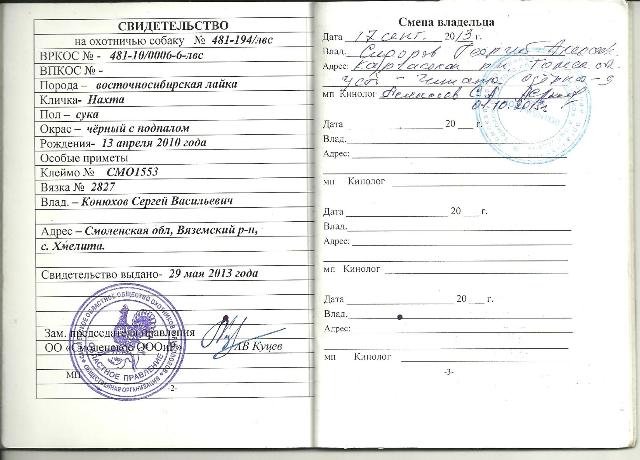 СВИДЕТЕЛЬСТВО
на охотничью собаку № 481-194/лвс
ВРКОС № - 481-10/0006-6-лвс
ВПКОС № -
Порода – восточносибирская лайка
Кличка- Нахта
Пол – сука
Окрас – чёрный с подпалом
Рождения- 13 апреля 2010 года
Особые приметы
Клеймо № СМО1553
Вязка № 2827
Влад. – Конюхов Сергей Васильевич
Адрес – Смоленская обл, Вяземский р-н,
с. Хмелита.
Свидетельство выдано- 29 мая 2013 года
Зам. председателя правления
ОО «Смоленское ОООиР»
АВ Куцев
МП
-2-
Смена владельца
Дата 17 сент. 2013 г.
Влад. Сидоров Георгий Алексеев.
Адрес: Каргасокский р-н. Томская
Усть - озёрно-9
мп Кинолог С.А.
01.10.2013г
Дата 20 г.
Влад.
Адрес:
мп Кинолог
Дата 20 г.
Влад.
Адрес:
мп Кинолог
Дата 20 г.
Влад.
Адрес:
мп Кинолог
-3-